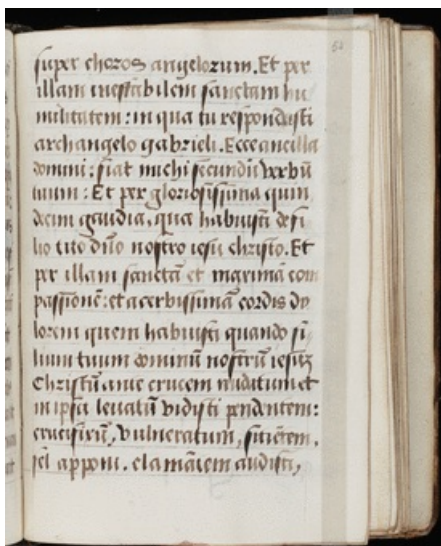 super choros angelorum. Et per
illam ineffabilem sanctam hu
militatem: in qua tu respondisti
archangelo gabrieli. Ecce ancilla
domini: fiat michi secundū verbū
tuum: Et per gloriosissima quin
decim gaudia, que habuisti de fi
lio tuo dn̄o nostro iesu christo. Et
per illam sanctā et maximā com
passionē: et acerbissimā cordis do
lorem quem habuisti quando fi
lium tuum dominū nostrū iesū
Christū ante crucem nudatum et
in ipsa levatū vidisti pendentem:
crucifixū, vulneratum, sitiētem,
fel apponi. clamātem audisti,
50